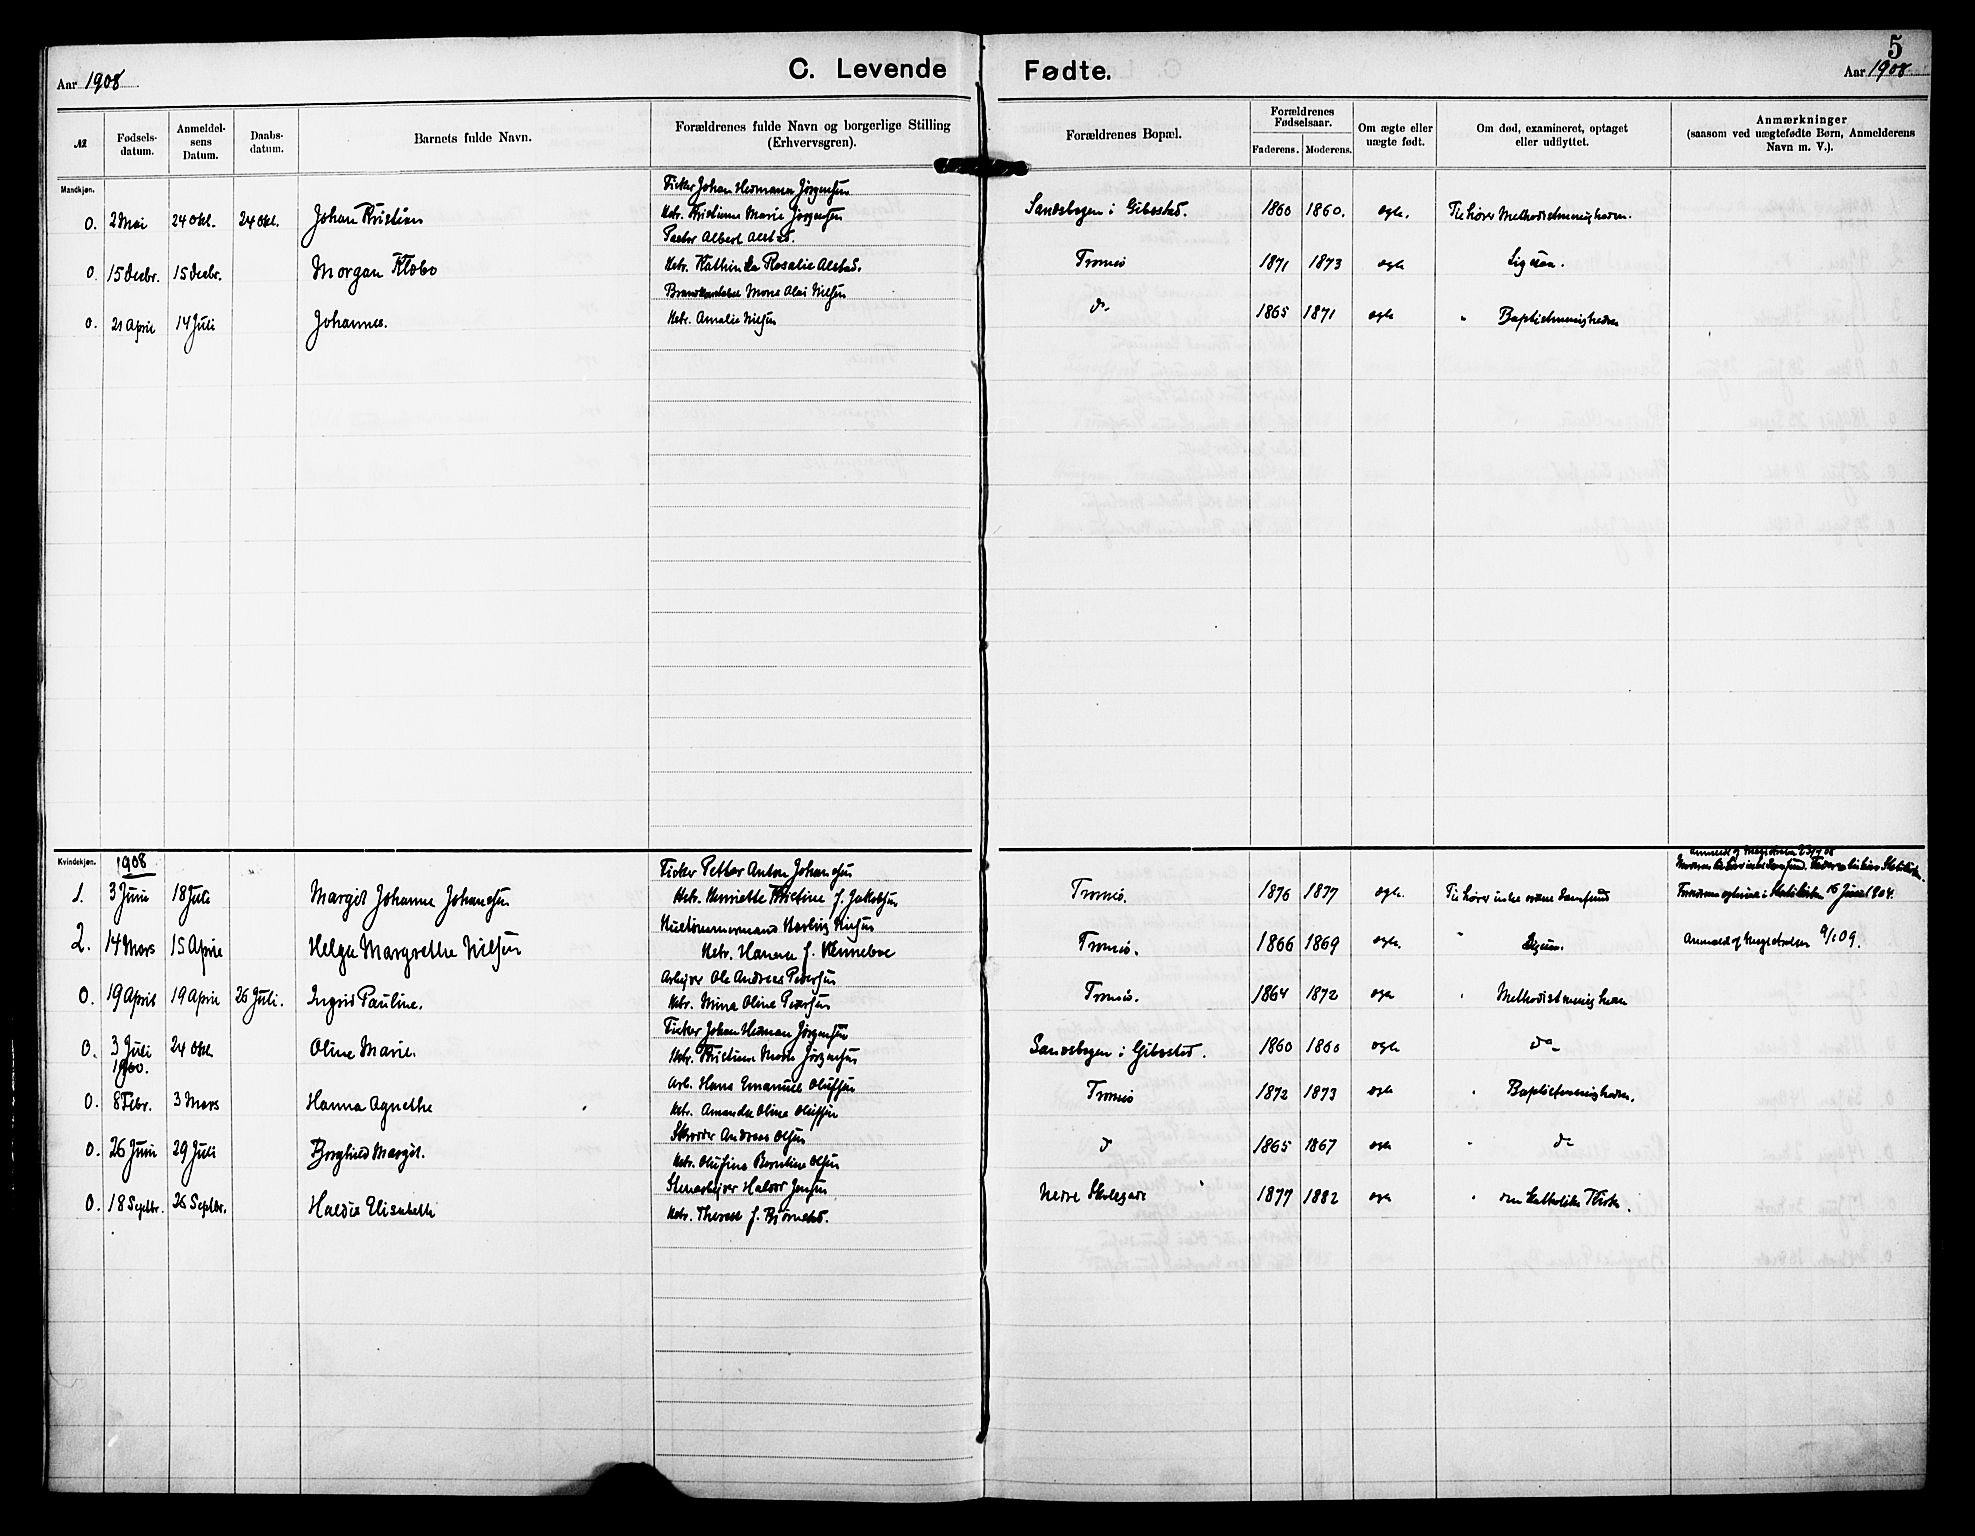 5
Aar 1908
C. Levende Fødte.
Aar 1908
№
Fødselsdatum.
Anmeldelsens Datum.
Daabsdatum.
Barnets fulde Navn.
Forældrenes fulde Navn og borgerlige Stilling (Erhvervsgren).
Forældrenes Bopæl.
Forældrenes Fødselsaar.
Faderens. Moderens.
Om ægte eller uægte født.
Om død, examineret, optaget eller udflyttet.
Anmærkninger (saasom ved uægtefødte Børn, Anmelderens Navn m. V.).
Mandkjøn.
Fisker Johan Hermann Jørgensen
0. 2 Mai 24 Okt. 24 Okt. Johan Kristian Hstr. Kristiane Marie Jørgensen Sandsbogen i Gibostad. 1860 1860. ægte. Tilhører Methodistmenigheden.
Pastor Albert Alstad.
0. 15 Decbr. 15 Decbr. Morgan Klæbo Hstr. Kathinka Rosalie Alstad. Tromsø 1871 1873 ægte Ligesaa.
Mons Olai Nilsen
0. 21 April 14 Juli Johannes. Hstr. Amalie Nilsen do 1865 1871 ægte " Baptistmenigheden
Kvindekjøn.
1908
Fisker Petter Anton Johansen
1. 3 Juni 18 Juli Margit Johanne Johansen Hstr. Henriette Kristine f. Jakobsen Tromsø. 1876 1877 ægte. Tilhører intet ordnet Samfund
Anmeldt af Magistraten 23/7 08
16 Juni 1904.
Hustømmermand Martin Nilsen
2. 14 Mars 15 April Helga Margrethe Nilsen Hstr. Hanna f. Henneboe Tromsø. 1866 1869 ægte. " Ligesaa. Anmeldt af Magistraten 9/1 09.
Arbejder Ole Andreas Pedersen
0. 19 April 19 April 26 Juli. Ingrid Pauline. Hstr. Mina Oline Pedersen Tromsø. 1864 1872 ægte " Methodistmenigheden
Fisker Johan Herman Jørgensen
0. 3 Juli 24 Okt. Oline Marie. Hstr. Kristiane Marie Jørgensen Sandsbogen i Gibostad. 1860 1860 ægte do
1900.
Arb. Hans Emanuel Olufsen
0. 8 Febr. 3 Mars Hanna Agnethe Hstr. Amanda Oline Olufsen Tromsø 1872 1873 ægte " Baptistmenigheden.
Skrædder Andreas Olsen
0. 26 Juni 29 Juli Borghild Margit. Hstr. Olufine Berntine Olsen do 1865 1867 ægte " do
Stenarbejder Halvor Jensen
0. 18 Septbr. 26 Septbr. Haldis Elisabeth Hstr. Therese f. Bjørnstad. Nedre Skolegade 1877 1882 ægte " den katholske Kirke.